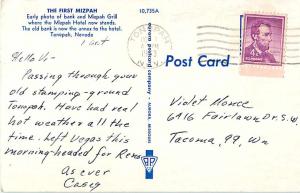 THE FIRST MIZPAH
Early photo of bank and Mizpah Grill
where the Mizpah Hotel now stands.
The old bank is now the annex to the hotel.
Tonopah, Nevada
10,735A
1 Oct
Hello Vi-
Passing through your
old stamping-ground
Tonopah. Have had real
hot weather all the
time. Left Vegas this
morning-headed for Reno
As ever
Casey
TONOPAH
PM
NEV.
4¢
Post Card
Violet House
6916 Fairlawn Dr. S.W.
Tacoma, 99. Wn